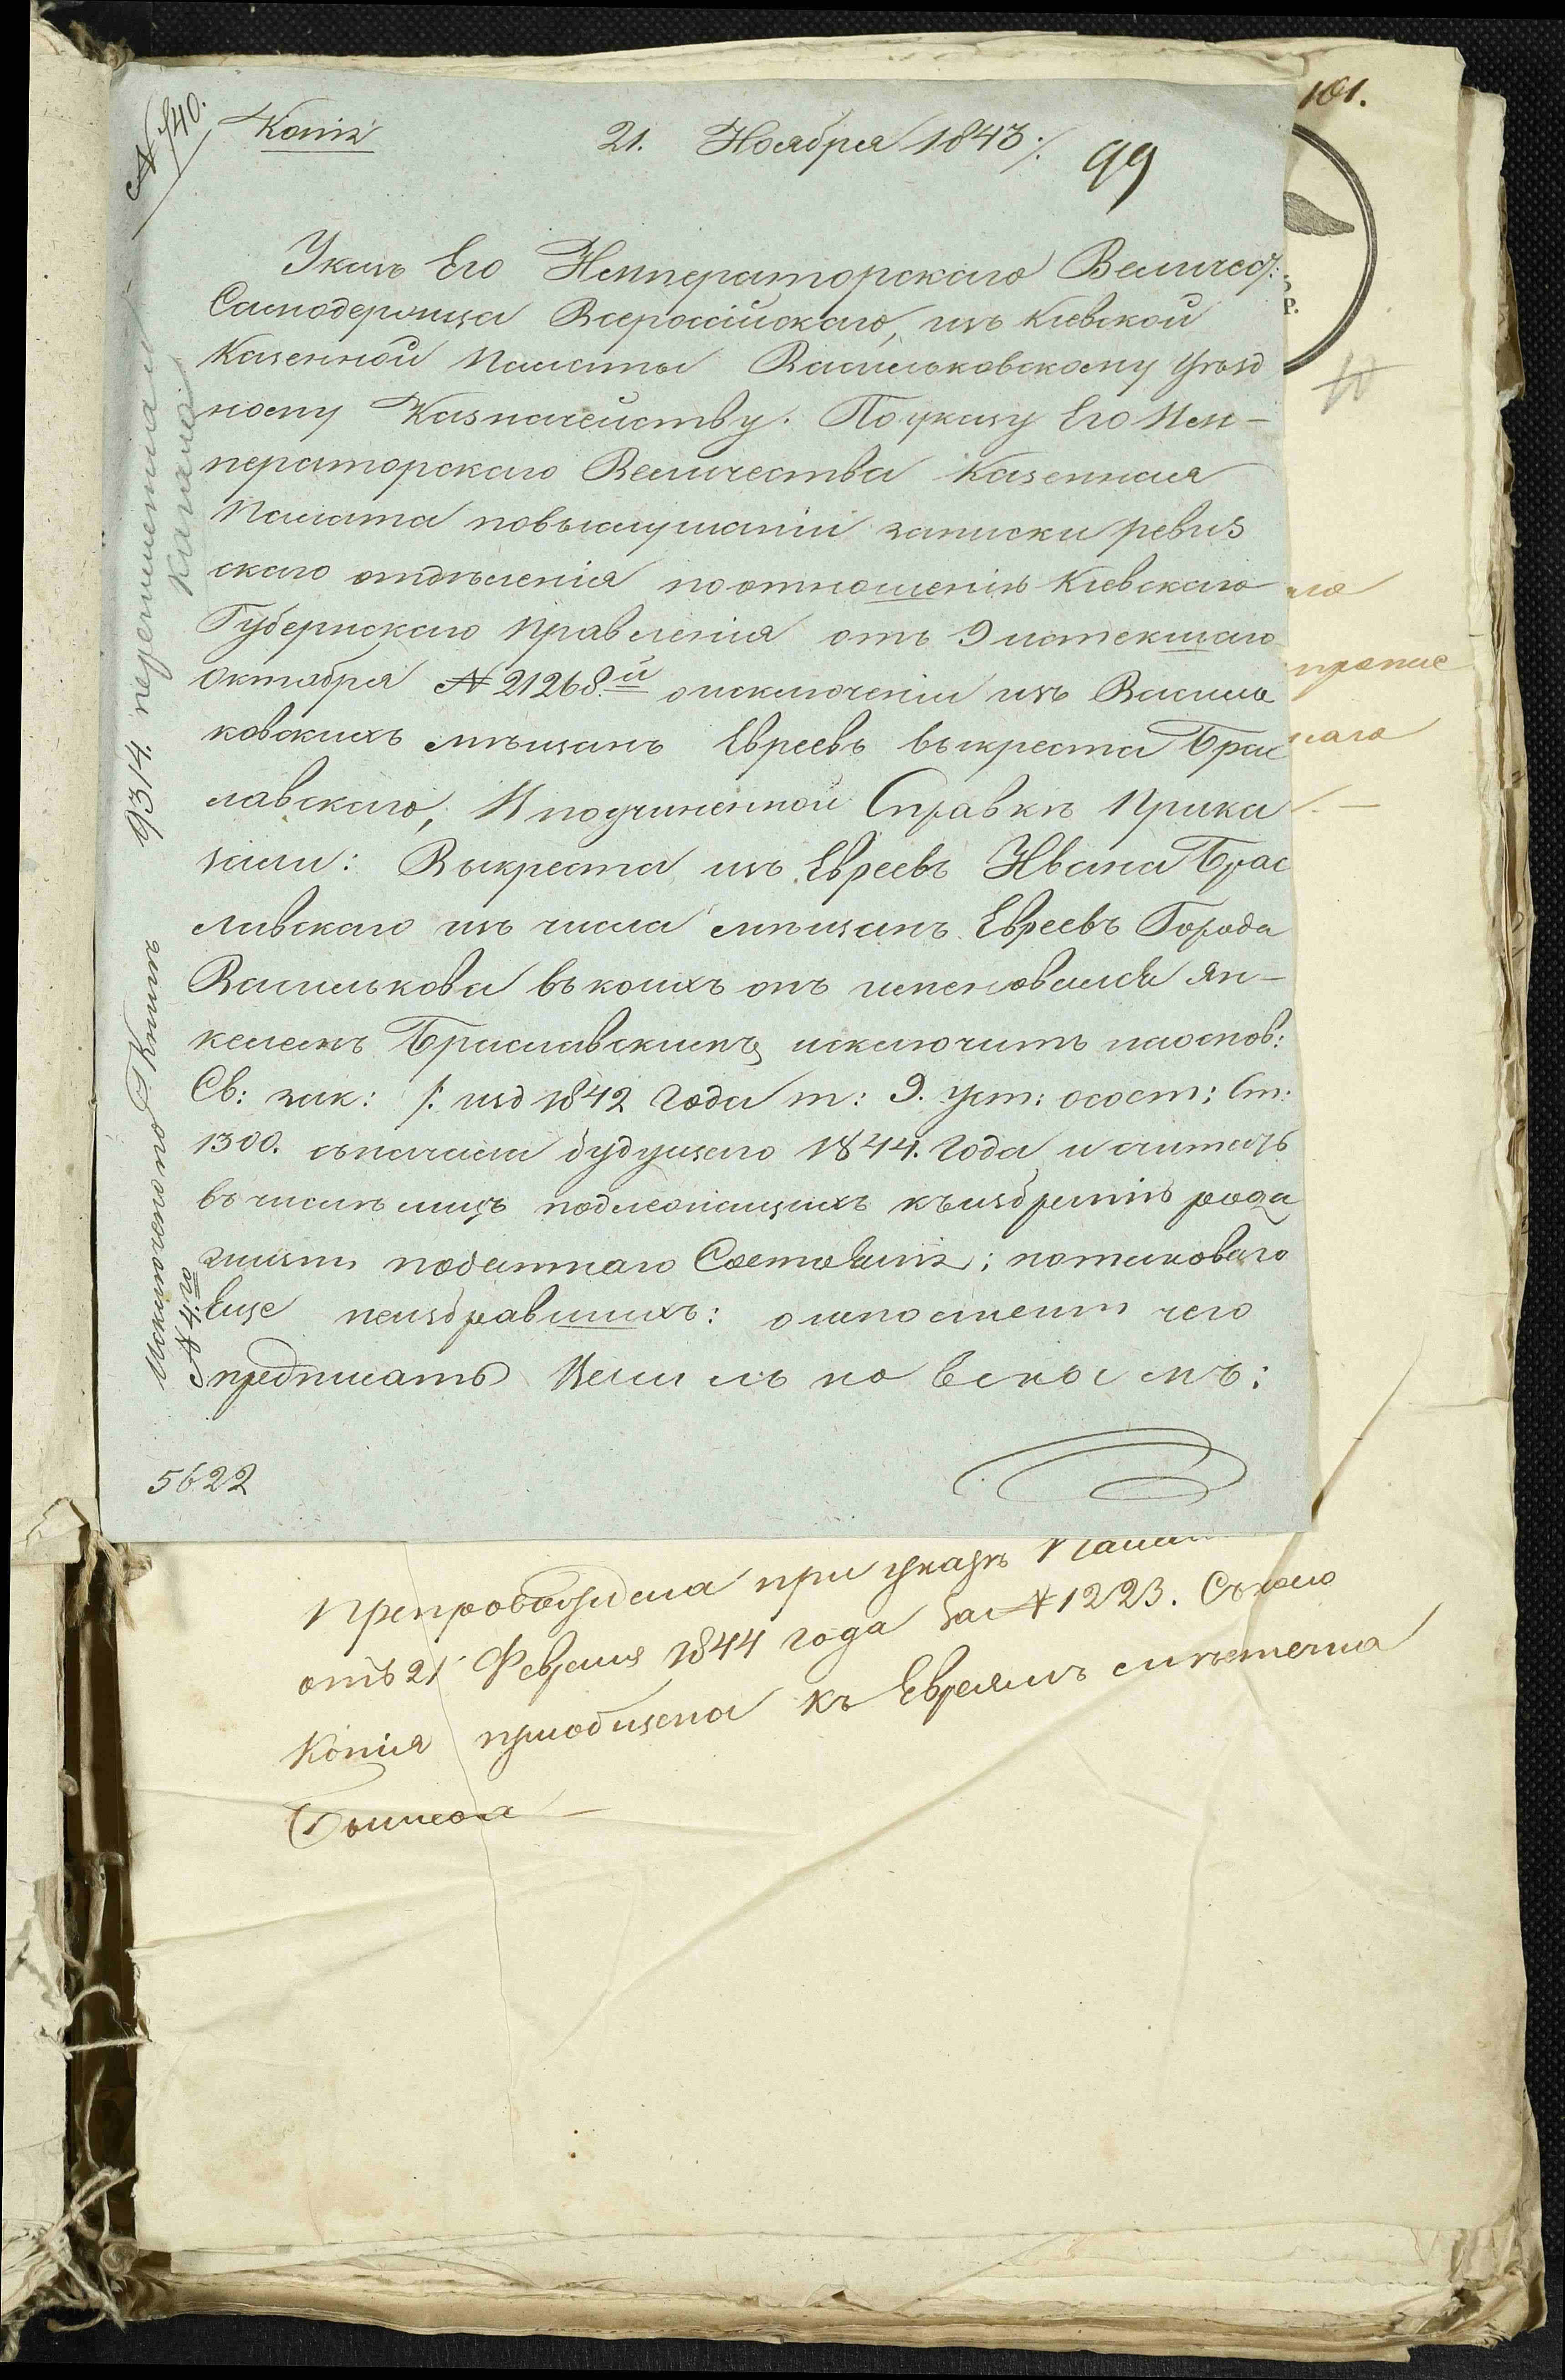 № 740.
Копія
21. Ноября 1843 /.
99
101.
Указъ Его Императорскаго Величест:
Самодержца Всероссійскаго, изъ Кіевской
Казенной Палаты Васильковскому Уѣзд
ному Казначейству. По указу Его Им-
ператорскаго Величества Казенная
Палата повыслушаніи записки ревиз
скаго отдѣленія поотношенію Кіевскаго
Губернскаго Правленія отъ 9 истекшаго
Октября № 21268.й оисключеніи изъ Василь
ковскихъ мѣщанъ Евреевъ выкреста Брас
лавскаго, И подчиненной Справкѣ Прика
зали: Выкреста изъ Евреевъ Ивана Брас
лавскаго изъ числа мѣщанъ Евреевъ Города
Василькова въкоихъ онъ именовался Ян-
келемъ Браславскимъ исключить наоснов:
Св: зак: /: изд 1842 года т: 9. уст: осост: Ст:
1300. съначала будущаго 1844. года и считать
въчислѣ лицъ подлежащихъ къизбранію рода
жизни податнаго Состоянія; потаковаго
Еще неизбравшихъ: о
чего
предписать
5622
9314. перемѣщенна
Исключено по Книгѣ
№ 4.го
Препровождена при указѣ Палаты
отъ 21 Февраля 1844 года за № 1223. Съ
Копія приобщена къ Евреямъ мѣстечка